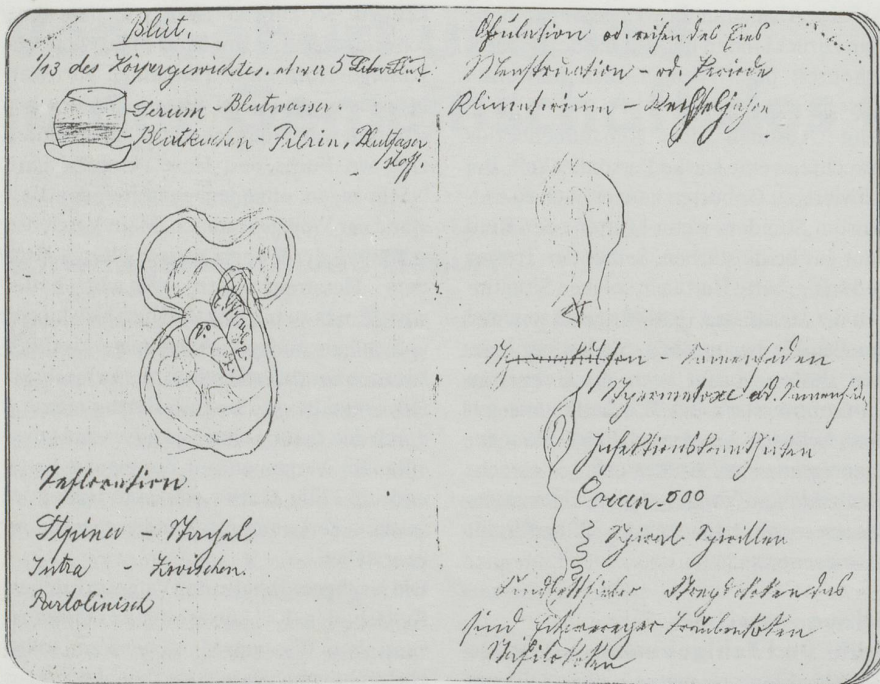 Blut.
1/13 des Körpergewichtes. etwa 5 Liter Blut
Serum - Blutwasser
Blutkuchen - Fibrin, Blutfaser
stoff.
Defloration
Spina - Stachel
Intra - Zwischen.
Bartolinisch
Ofulation od. reifen des Eies
Menstruation - od. Periode
Klimaterium - Wechseljahre
- Samenfäden
Spermatoxe od. Samenfäd.
Infektionskrankheiten
Coccen 000
Spiral Spirillen
Kindbettfieber Streptokoken das
sind Eitererreger Traubenkoken
Stafilokoken